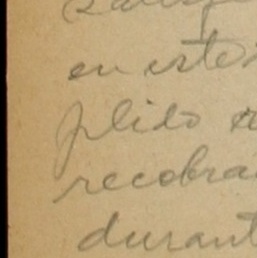 en este
plido
recobra
durant